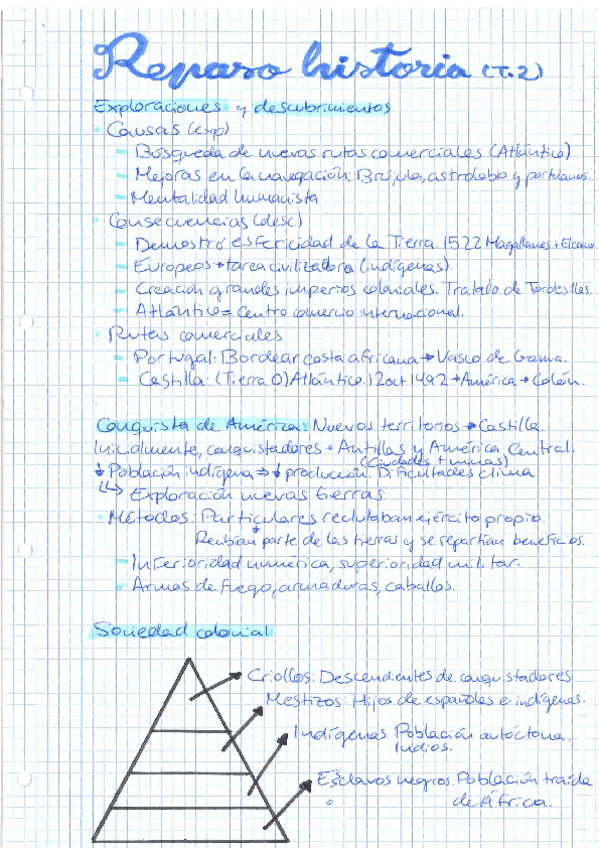 Repaso historia (T.2)
Exploraciones y descubrimientos
· Causas (exp)
- Búsqueda de nuevas rutas comerciales (Atlántico)
- Mejoras en la navegación; Brújula, astrolabio y portulanos.
- Mentalidad humanista
· Consecuencias (desc)
- Demostró esfericidad de la Tierra. 1522 Magallanes + Elcano
- Europeos → tarea civilizadora (indígenas)
- Creación grandes imperios coloniales. Tratado de Tordesillas.
- Atlántico = Centro comercio internacional.
· Rutas comerciales
- Portugal: Bordear costa africana → Vasco de Gama.
- Castilla: (Tierra O) Atlántico. 12 oct 1492 → América → Colón.
Conquista de América: Nuevos territorios → Castilla.
Inicialmente, conquistadores → Antillas y América Central.
(Ciudades + minas)
↓ Población indígena ⇒ ↓ producción. Dificultades clima
↳ Exploración nuevas tierras
· Métodos: Particulares reclutaban ejército propio.
↓
Recibían parte de las tierras y se repartían beneficios.
- Inferioridad numérica, superioridad militar.
- Armas de fuego, armaduras, caballos.
Sociedad colonial
Criollos: Descendientes de conquistadores
Mestizos: Hijos de españoles e indígenas.
Indígenas Población autóctona.
Indios.
Esclavos negros. Población traída
de África.